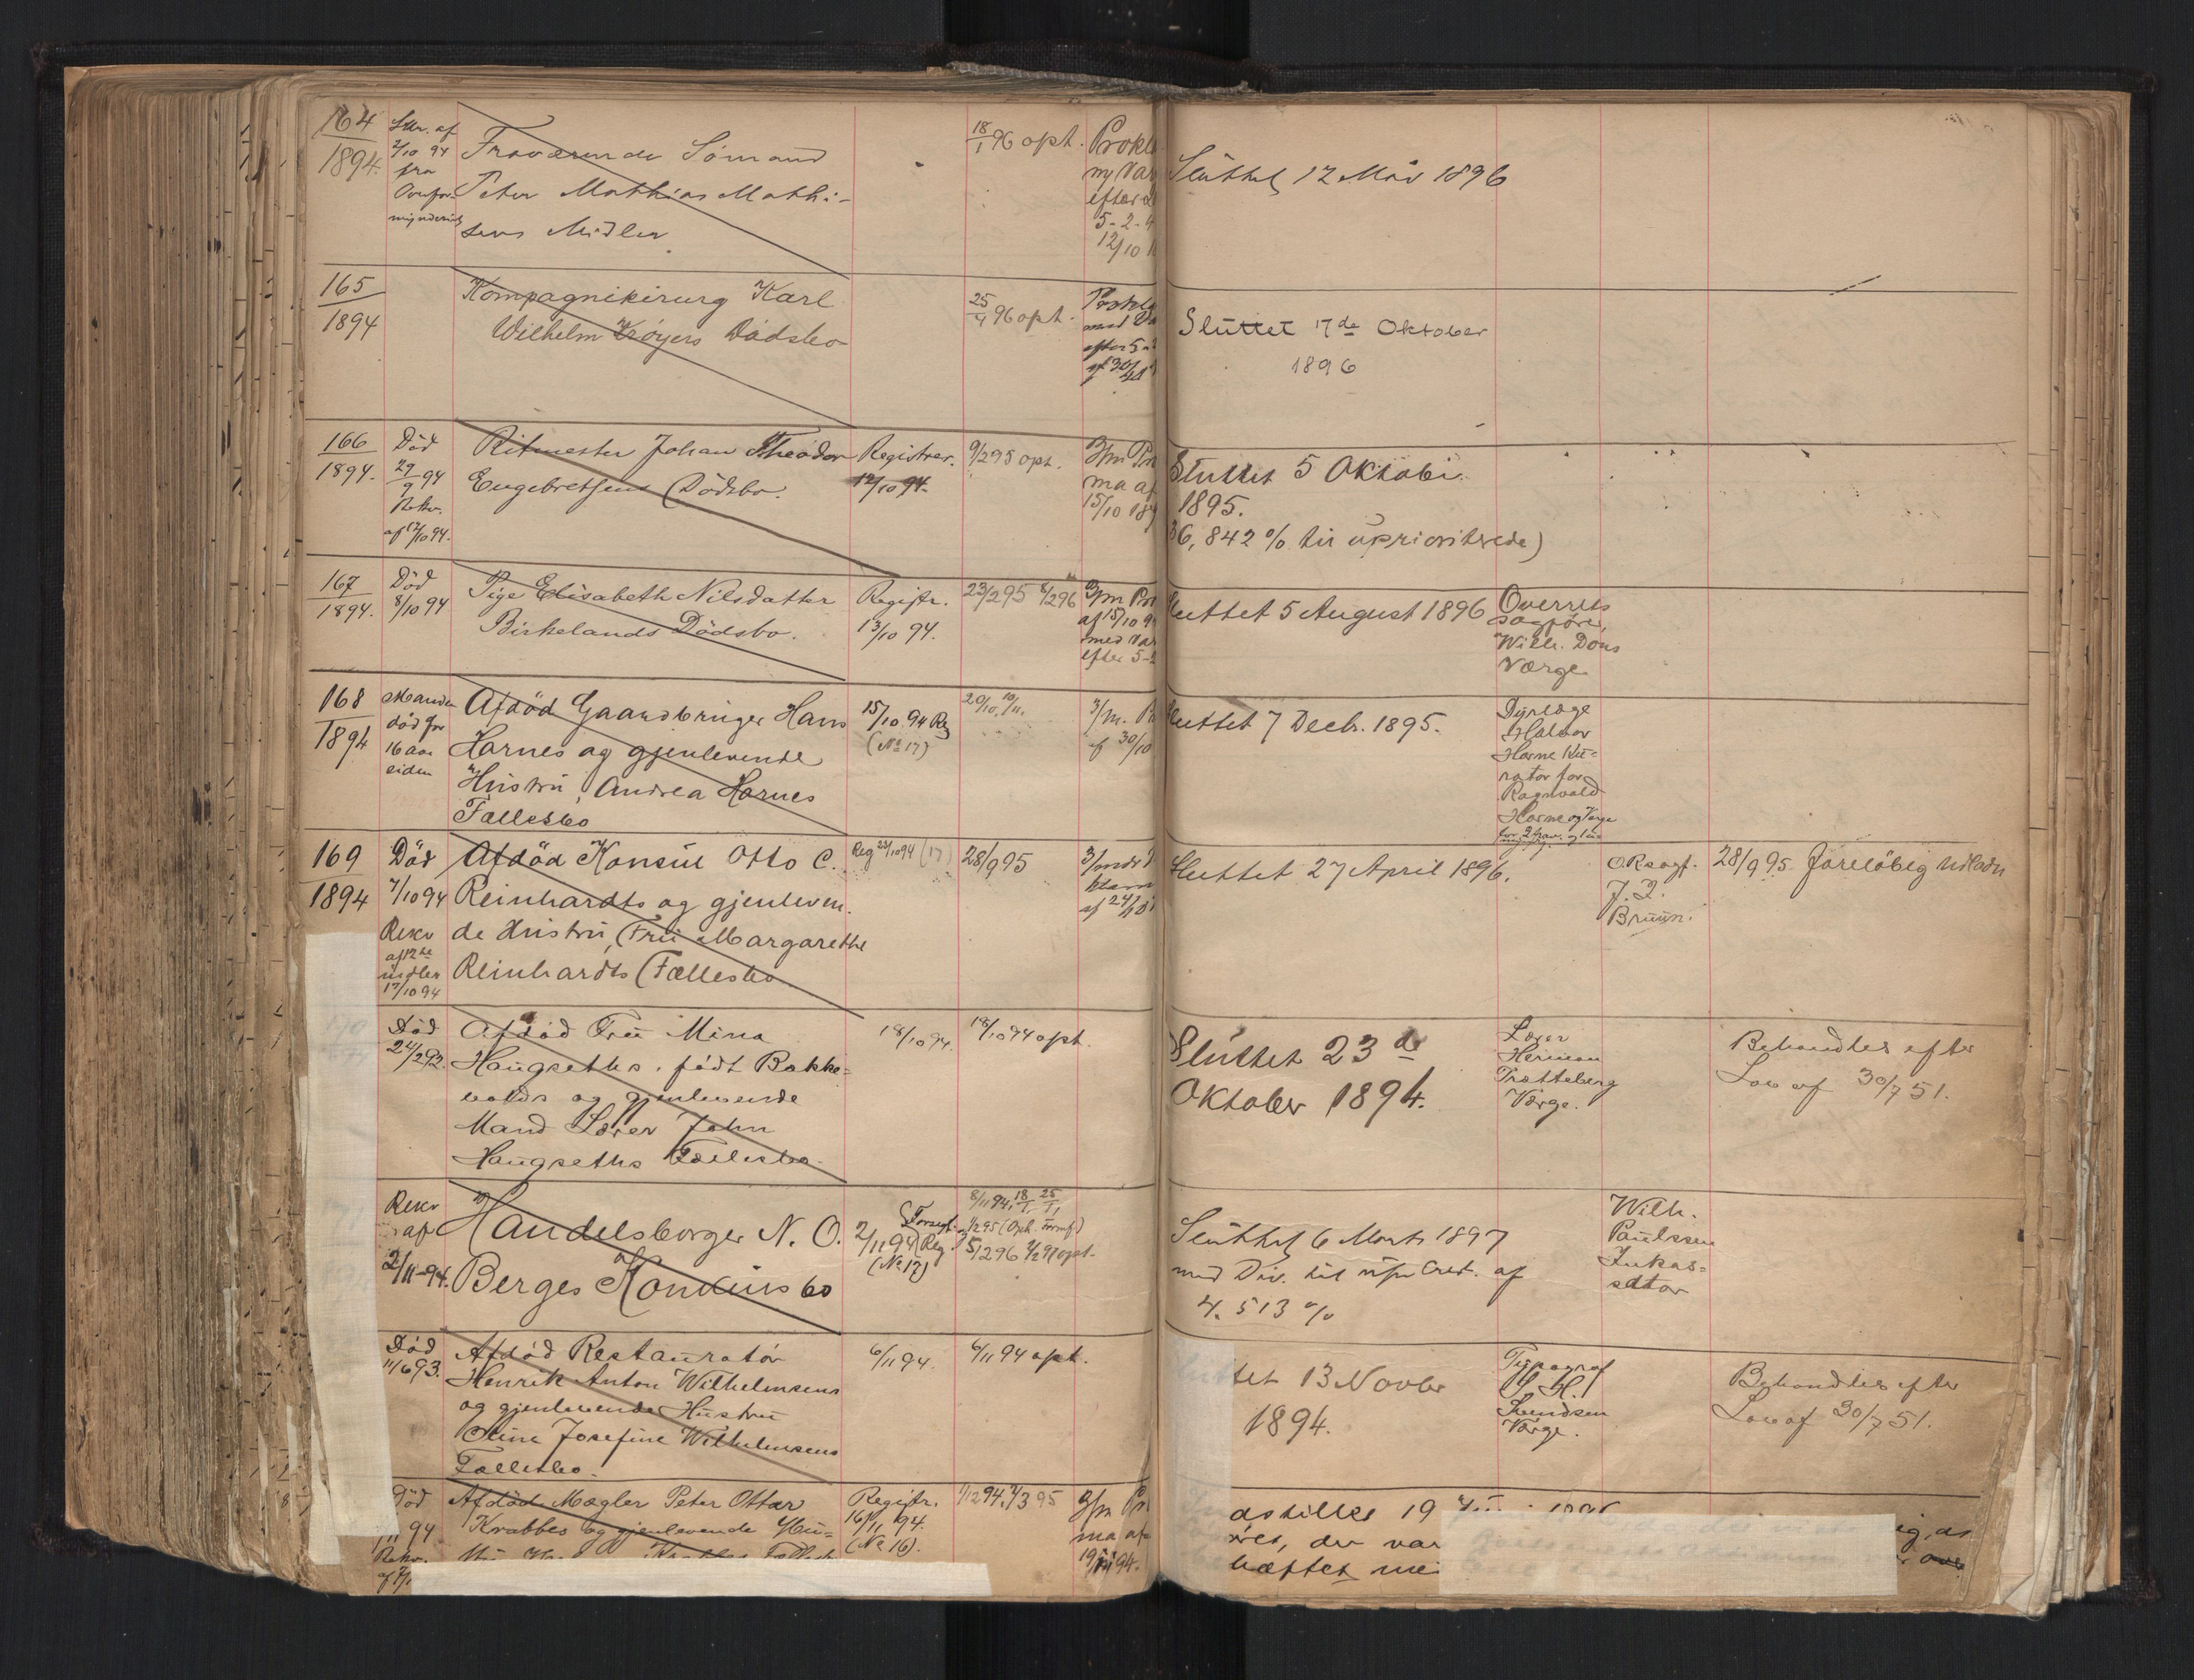 164
1894.
Skr. af
2/10 94
fra
Fraværende Sömand
Peter Mathias Mathi-
sens Midler
18/1 96 opt.
Prokl
ny Var
efter
5-2-
12/10
Sluttet 12 Mai 1896
165
1894
Kompagnikirurg Karl
Wilhelm Krøyers Dødsbo
25/4 96 opt.
med Va
efter 5-
af 30/
Sluttet 17de Oktober
1896
166
1894.
Död
29/9 94
Rekv.
af 12/10 94.
Ritmester Johan Theodor
Engebretsens Dödsbo.
Registrer.
12/10 94.
9/2 95 opt.
3/m Pr
ma af
15/10 189
Sluttet 5 Oktobr.
1895.
36,842 % til uprioriterede)
167
1894.
Död
8/10 94
Pige Elisabeth Nilsdatter
Birkelands Dödsbo.
Registr.
13/10 94.
23/2 95 8/2 96
3/m Pr
af 15/10 9
med Var
efter 5-
Sluttet 5 August 1896
Overrets
sagförer
Wilh. Dons
Værge
168
1894
Manden
död for
16 aar
siden
Afdöd Gaardbruger Hans
Harnes og gjenlevende
Hustru, Andrea Harnes
Fællesbo
15/10 94 Reg
(No 17)
29/10, 19/11.
3/m. P
af 30/10
Sluttet 7 Decb. 1895.
Dyrlæge
Halvor
Horne Ku-
rator for
Ragnvald
Horne og Værge
169
1894
Död
7/10 94
Rekv
af 12te
indler
17/10 94
Afdöd Konsul Otto C.
Reinhardts og gjenleven-
de Hustru, Fru Margarethe
Reinhardts Fællesbo
Reg 23/10 94 (17)
28/9 95
3/mdr
klam
af 24/
Sluttet 27 April 1896.
ORsagf.
Bruun.
28/9 95 foreløbig Udlodn
Död
24/2 92.
Afdöd Fru Mina
Haugseths, födt Bakke-
volds og gjenlevende
Mand Lærer John
Haugseths Fællesbo.
18/10 94.
18/10 94 opt.
Sluttet 23de
Oktober 1894.
Lærer
Herman
Trætteberg
Værge.
Behandles efter
Lov af 30/7 51.
Rekv
af
2/11-94.
Handelsborger N. O.
Berges Konkursbo
Forsegl.
2/11 94 Reg
(No 17)
8/11 94, 18/1, 25/1,
5/2 96 2/2 97 opt.
Sluttet 6 Marts 1897
med Div. til upr Cred. af
4.513 %
Wilh.
Paulssen
Inkas-
sator
Död
11/6 93.
Afdöd Restauratör
Henrik Anton Wilhelmsens
og gjenlevende Hustru
Oline Josefine Wilhelmsens
Fællesbo.
6/11 94.
6/11 94 opt.
tet 13 Novbr
1894.
Typograf
Svendsen
Værge.
Behandles efter
Lov af 30/7 51.
Död
11 94
Rekv.
Afdöd Mægler Peter Ottar
Krabbes og gjenlevende Hu-
Registr.
16/11 94.
(No 16).
1/12 94. 4/3 95
3/m Pr
ma af
19/11 94.
19
der var
hæftet